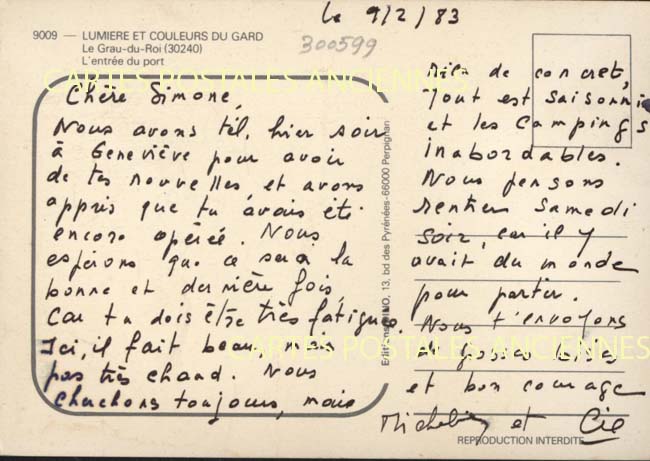 le 9/2/83
9009 — LUMIERE ET COULEURS DU GARD
Le Grau-du-Roi (30240)
L'entrée du port
300599
CARTES POSTALES ANCIENNES
Chère Simone,
Nous avons tél. hier soir
à Geneviève pour avoir
de tes nouvelles et avons
appris que tu avais été
encore opérée. Nous
espérons que ce sera la
bonne et dernière fois,
car tu dois être très fatiguée.
Ici, il fait beau, mais
pas très chaud. Nous
cherchons toujours, mais
Editions 13, bd des Pyrénées-66000 Perpignan
rien de concret,
Tout est saisonnie
et les Campings
inabordables.
Nous pensons
rentrer Samedi
soir, car il y
avait du monde
pour partir.
Nous t'envoyons
grosses bises
et bon courage
et Cie
CARTES POSTALES ANCIENNES
REPRODUCTION INTERDITE